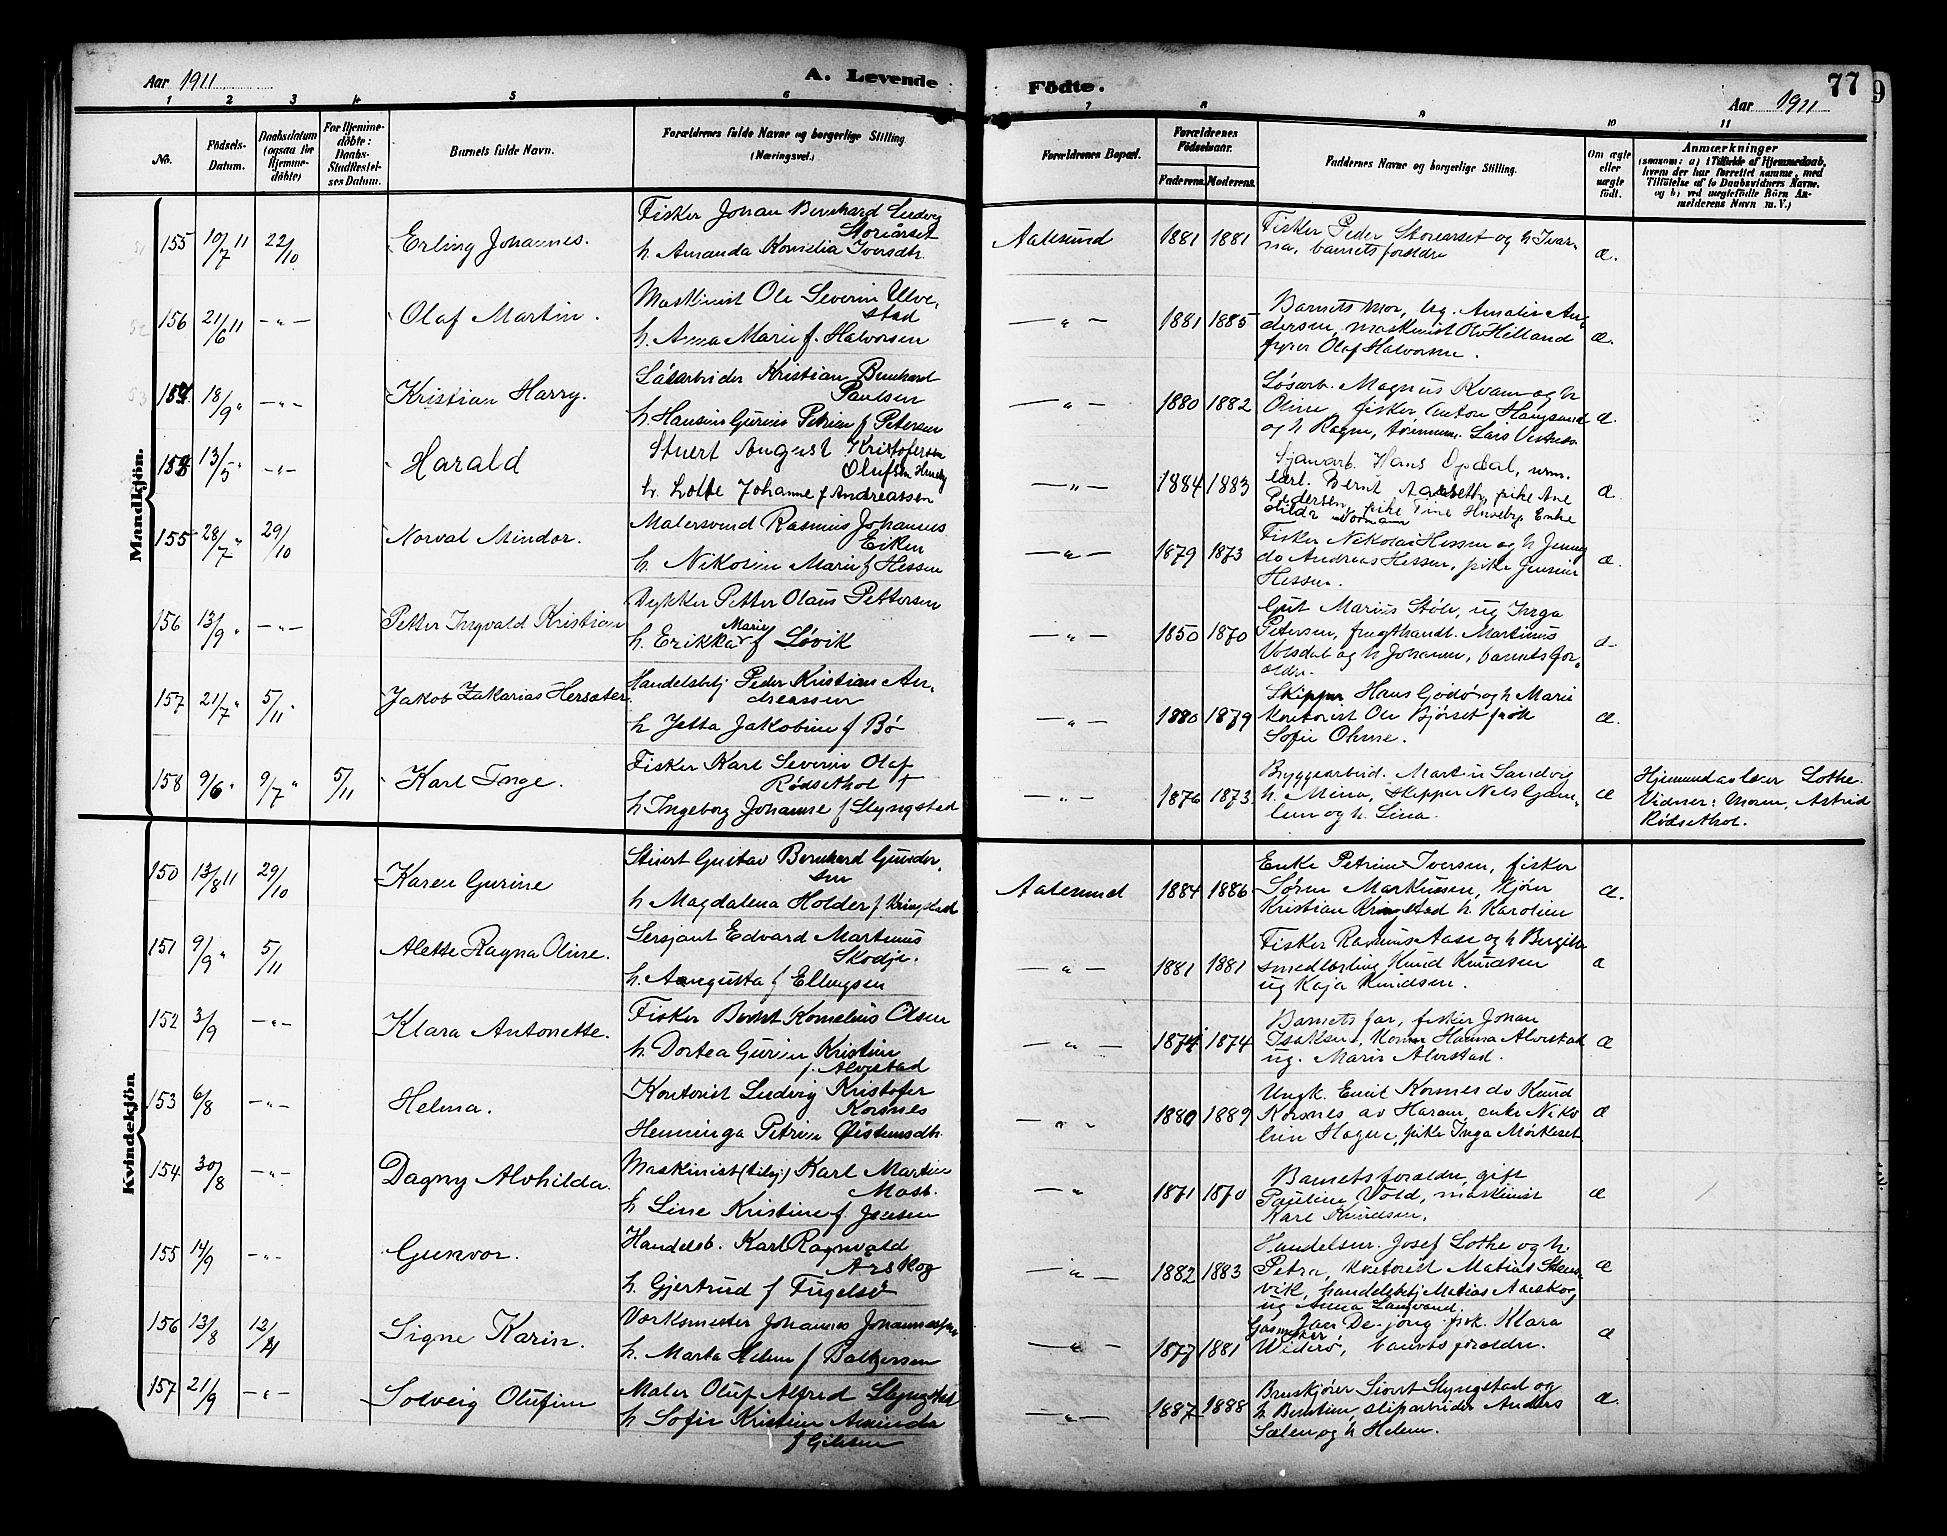 Aar 1911
A. Levende
Födte.
77
9
Aar 1911
1 2 3 4 5 6 7 8 9 10 11
No.
Födsels-
Datum.
Daabsdatum
(ogsaa for
Hjemme-
döbte)
For Hjemme-
döbte:
Daabs-
Stadfæstel-
ses Datum.
Barnets fulde Navn.
Forældrenes fulde Navne og borgerlige Stilling
(Næringsvei.)
Forældrenes Bopæl.
Forældrenes
Födselsaar.
Faderens. Moderens.
Faddernes Navne og borgerlige Stilling.
Om ægte
eller
uægte
födt.
Anmærkninger
(saasom: a) i Tilfælde af Hjemmedaab,
hvem der har forrettet samme, med
Tilföielse af to Daabsvidners Navne.
og b) ved uægtefödte Börn An-
melderens Navn m. V.)
Mandkjön.
155 10/7 11 22/10 Erling Johannes.
Fisker Johan Bernhard Ludvig
Storiårset
h. Amanda Kornelia Iversdtr.
Aalesund 1881 1881
Fisker Peder Storearset og h Ivar-
na, barnets forældre
æ.
156 21/6 11 —"— Olaf Martin.
Maskinist Ole Severin Ulve-
stad
h. Anna Marie f. Halvorsen
—"— 1881 1885
Barnets mor, ug. Amalie An-
dersen, maskinist Ole Helland
fyrer Olaf Halvorsen.
æ.
157 18/9 " —"— Kristian Harry.
Løsarbeider Kristian Bernhard
Paulsen
h. Hansine Gurine Petrine f Petersen
—"— 1880 1882
Løsarb. Magnus Kvam og h
Oline, fisker Anton Haugsund
og h Ragna, tømmerm. Lars Vestnes
æ.
158 13/5 " —"— Harald
Stuert August Kristofersen
Olufsen
h. Lotte Johanne f Andreassen
—"— 1884 1883
Sjauarb. Hans Opdal, urm.
lærl. Bernt Aarseth, pike Ane
Pedersen, pike Tine Huseby, Enke
Hilda Normann
æ
155 28/7 " 29/10 Norval Mindor.
Malersvend Rasmus Johannes
Eiken
h. Nikoline Marie f Hessen
—"— 1879 1873
Fisker Nikolai Hessen og h Jenny
do Andreas Hessen, pike Jensine
Hessen.
æ.
156 13/9 " —"— Petter Ingvald Kristian
Dykker Petter Olaus Pettersen
h. Erikka Marie f Løvik
—"— 1850 1870
Gut Marius Støle, ug Inga
Petersen, frugthandl. Martinus
Volsdal og h Johanne, barnets for-
ældre.
æ
157 21/7 " 5/11 " Jakob Zakarias Hersæter
Handelsbetj Peder Kristian An-
dreassen
h Jetta Jakobine f Bø
—"— 1880 1879
Skipper Hans Godø og h Marie
kontorist Ole Bjørset frøk
Sofie Ohme.
æ.
158 9/6 " 9/7 " 5/11 Karl Inge.
Fisker Karl Severin Olaf
Rødsethol †
h Ingeborg Johanne f Slyngstad
—"— 1876 1873.
Bryggearbeid. Martin Sandvig
h. Mina, skipper Nels Gjær-
lum og h. Lina.
æ
Hjemmed av lærer Lothe.
Vidner: moren, Astrid
Rødsethol.
Kvindekjön
150 13/8 11 29/10 Karen Gurine
Stuert Gustav Bernhard Gunder-
sen
h Magdalena Holder f Kringstad
Aalesund 1884 1886
Enke Petrine Iversen, fisker
Søren Markussen, kjører
Kristian Kringstad h. Karoline
æ.
151 9/9 " 5/11 Alette Ragna Oline.
Sersjant Edvard Martinus
Skodje.
h. Augusta f Ellingsen
—"— 1881 1881
Fisker Rasmus Aase og h Bergitha
smedlærling Knud Knudsen
ug Kaja Knudsen.
æ
152 3/9 —"— Klara Antonette.
Fisker Bernt Kornelius Olsen
h. Dortea Gurine Kristine
f. Alvestad
—"— 1874 1874
Barnets far, fisker Johan
Isaksen, kone Hanna Alvestad
ug. Marie Alvestad.
æ
153 6/8 —"— Helma.
Kontorist Ludvig Kristofer
Korsnes
Henninga Petrine Østensdtr.
—"— 1880 1889
Ungk. Emil Korsnes do Knud
Korsnes av Haram, enke Niko
line Hagen, pike Inga Mørkeset
æ
154 30/8 —"— Dagny Alvhilda.
Maskinist Karl Martin
Moseb.
h Line Kristine f. Jensen
—"— 1871 1870
Barnets forældre, gift
Pauline Vold, maskinist
Karl Knudsen.
æ
155 14/9 —"— Gunvor.
Handelsb. Karl Ragnvald
Arskog
h. Gjertrud f Fugelsø
—"— 1882 1883
Handelsm. Josef Lothe og h.
Petra, kontorist Matias
vik, handelsbetj Matias Aarskog
ug Anna Langvand.
æ
156 13/8 12/11 Signe Karin.
Værksmester Johannes Johannessen
h. Marta Helene f Baltzersen
—"— 1877 1881
Gasmester Iver De-jong frøk. Klara
Widerø, barnets forældre.
æ
157 21/9 —"— Solveig Olufine
Maler Oluf Alfred Slyngstad
h Sofie Kristine Aminda
f Gilesen
—"— 1887 1888
Bruskjører Sivert Slyngstad og
h Berntine, sliparbeider Anders
Sælen og h Helene.
æ.